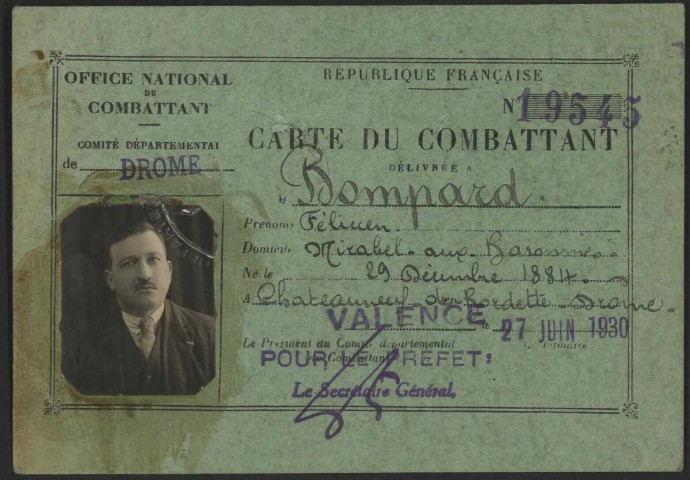 OFFICE NATIONAL
DU
COMBATTANT
COMITÉ DÉPARTEMENTAL
de DROME
RÉPUBLIQUE FRANÇAISE
N° 19545
CARTE DU COMBATTANT
DÉLIVRÉE A
M Bompard.
Prénoms Félicien.
Domicile Mirabel-aux-Baronnies
Né le 29 Décembre 1884
A Chateauneuf-de-Bordette-Drôme-
VALENCE le 27 JUIN 1930
Le Président du Comité départemental
du Combattant
Le Titulaire
POUR LE PREFET:
Le Secrétaire Général,